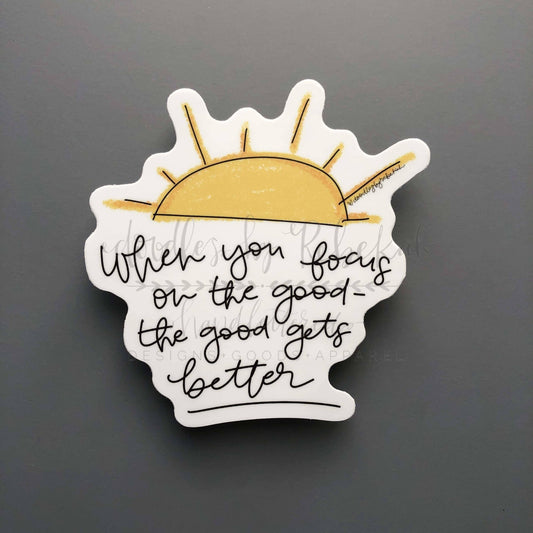 doodles by Rebekah
When you focus
on the good-
the good gets
better
DESIGNS • GOODS • APPAREL